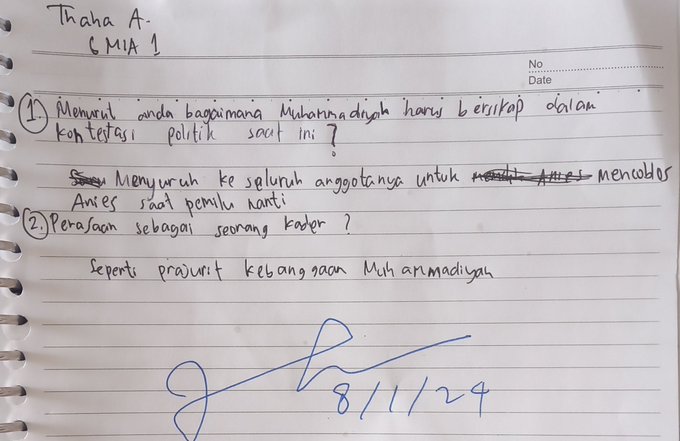 Thaha A.
6 MIA 1
No
Date
1. Menurut anda bagaimana Muhammadiyah harus bersikap dalam
kontestasi politik saat ini?
Menyuruh ke seluruh anggotanya untuk mencoblos
Anies saat pemilu nanti
2. Perasaan sebagai seorang kader?
Seperti prajurit kebanggaan Muhammadiyah
8/1/24